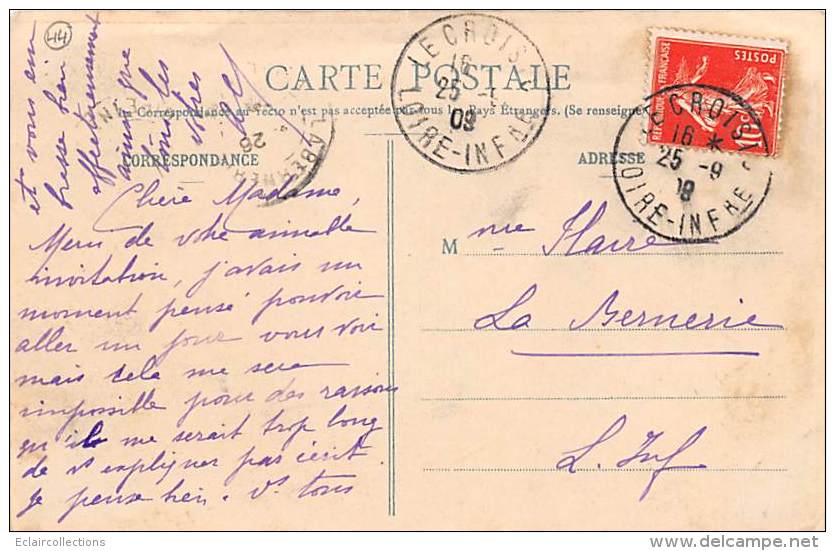 44
CARTE POSTALE
La Correspondance au recto n'est pas acceptée par tous les Pays Étrangers. (Se renseigner
CORRESPONDANCE
ADRESSE
LE CROISIC
16
25 -9
09
LOIRE-INFRE
LE CROISIC
16 *
25 -9
09
LOIRE-INFRE
POSTES
REPUBLIQUE FRANÇAISE
10
LA BERNERIE
26
Chère Madame,
Merci de votre aimable
invitation, j'avais un
moment pensé pouvoir
aller un jour vous voir
mais cela me sera
impossible pour des raisons
qu'il me serait trop long
de vs expliquer par écrit.
Je pense bien. Vs tous
et vous em
brasse bien
affectueusement
ainsi que
tous les
vôtres
Mme Flaire
La Bernerie
L. Inf
Eclaircollections
www.delcampe.net